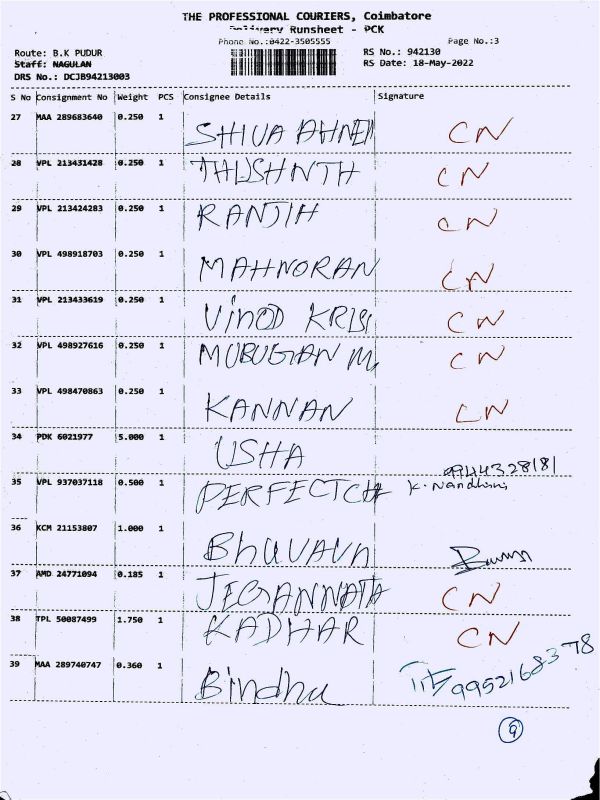 THE PROFESSIONAL COURIERS, Coimbatore
Delivery Runsheet - PCK
Phone No.:0422-3505555 Page No.:3
Route: B.K PUDUR RS No.: 942130
Staff: NAGULAN RS Date: 18-May-2022
DRS No.: DCJB94213003
S No Consignment No Weight PCS Consignee Details Signature
27 MAA 289683640 0.250 1 SHIVA AHNEM CN
28 VPL 213431428 0.250 1 CN
29 VPL 213424283 0.250 1 RANJIH CN
30 VPL 498918703 0.250 1 MAHNORAN CN
31 VPL 213433619 0.250 1 VINOD KRISI CN
32 VPL 498927616 0.250 1 CN
33 VPL 498470863 0.250 1 KANNAN CN
34 PDK 6021977 5.000 1 USHA 9944328181
35 VPL 937037118 0.500 1 PERFECTCH K. Nandhini
36 KCM 21153807 1.000 1 BhUVAVn
37 AMD 24771094 0.185 1 JEGANNATA CN
38 TPL 50087499 1.750 1 KADHAR CN
39 MAA 289740747 0.360 1 Bindhu 9952168378
9